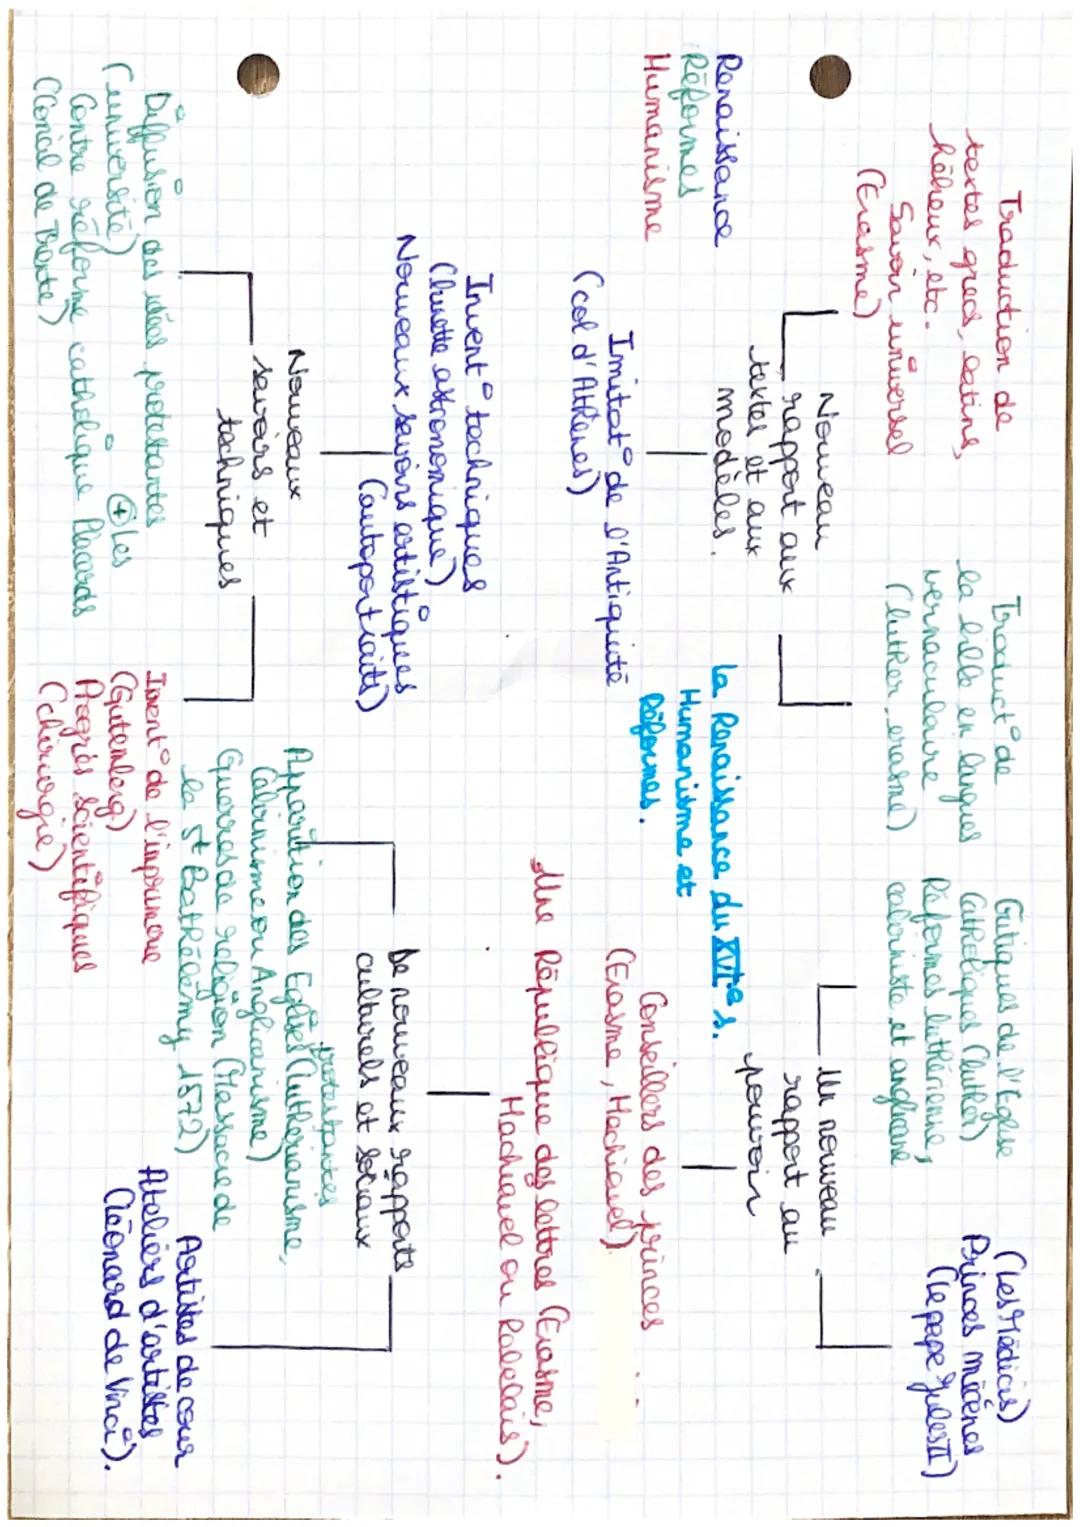 Renaissance
Réformes
Humanisme
Traduction de
textes grecs, latins,
hébreux, etc.
Savoir universel
(Erasme)
Nouveau
rapport aux
textes et aux
modèles.
Imitat° de l'Antiquité
(col d'Athènes)
Traduct° de
la bible en langues
vernaculaire
(luther, erasme)
Critiques de l'Eglise
Catholiques (luther)
Réformes luthérienne,
calviniste et anglicane
Un nouveau
rapport au
pouvoir
(les Médicis)
Princes mécènes
(le pape Jules II)
Conseillers des princes
(Erasme, Machiavel).
la Renaissance du XVI e s.
Humanisme et
Réformes.
Invent° techniques
(lunette astronomique)
Nouveaux savoirs artistiques
(autoportraits)
Nouveaux
savoirs et
techniques
Diffusion des idées protestantes
(université)
+ les
Contre réforme catholique Placards
(Concil de Trente)
Invent° de l'imprimerie
(Gutenberg)
Progrès scientifiques
(chirurgie)
Une République des lettres (Erasme,
Machiavel ou Rabelais).
De nouveaux rapports
culturels et sociaux
Apparition des Eglises protestantes (luthérianisme,
Calvinisme ou Anglicanisme)
Guerres de religion (Massacre de
la St Bathélémy 1572)
Artistes de cour
Ateliers d'artistes
(léonard de Vinci).